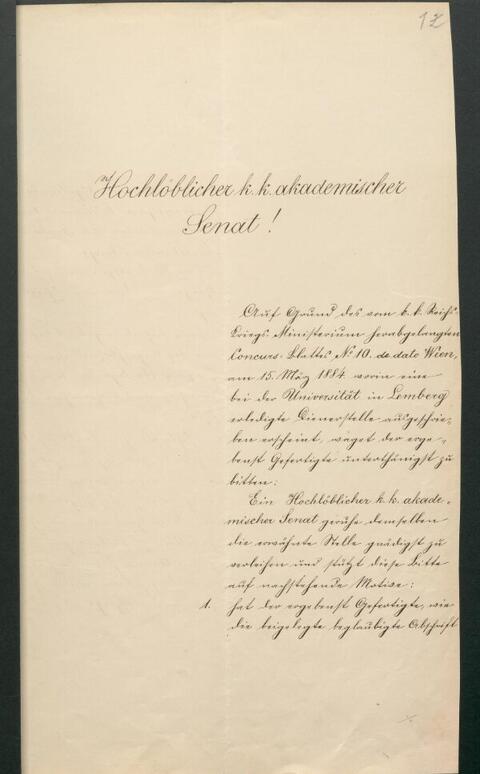 12
Hochlöblicher k. k. akademischer
Senat!
Auf Grund des vom k. k. Reichs-
Kriegs-Ministerium herabgelangten
Concurs-Blattes No 10. de dato Wien,
am 15. März 1884 worin eine
bei der Universität in Lemberg
erledigte Dienerstelle ausgeschrie-
ben erscheint, waget der erge-
benst Gefertigte unterthänigst zu
bitten:
Ein Hochlöblicher k. k. akade-
mischer Senat geruhe demselben
die erwähnte Stelle gnädigst zu
verleihen und stützt diese Bitte
auf nachstehende Motive:
1. hat der ergebenst Gefertigte, wie
die beigelegte beglaubigte Abschrift